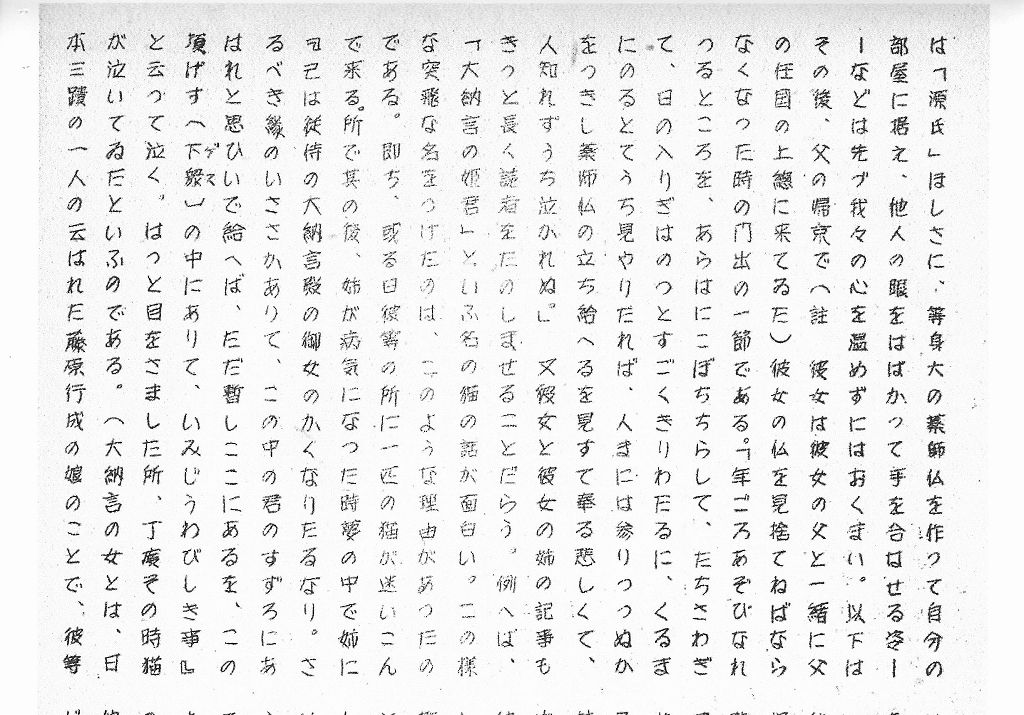 は「源氏」ほしさに、等身大の薬師仏を作って自分の
部屋に据え、他人の眼をはばかって手を合はせる姿ー
ーなどは先づ我々の心を温めずにはおくまい。以下は
その後、父の帰京で(註　彼女は彼女の父と一緒に父
の任国の上總に来てゐた)彼女の仏を見捨てねばなら
なくなった時の門出の一節である。「年ごろあそびなれ
つるところを、あらはにこぼちちらして、たちさわぎ
て、日の入りぎはのつとすごくきりわたるに、くるま
にのるとてうち見やりたれば、人まには参りつつぬか
をつきし薬師仏の立ち給へるを見すて奉る悲しくて、
人知れずうち泣かれぬ。」　又彼女と彼女の姉の記事も
きっと長く読者をたのしませることだらう。例へば、
「大納言の姫君」といふ名の猫の話が面白い。この様
な突飛な名をつけたのは、このような理由があつたの
である。即ち、或る日彼等の所に一匹の猫が迷いこん
で来る。所で其の後、姉が病気になつた時夢の中で姉に
『己は従侍の大納言殿の御女のかくなりたるなり。さ
るべき縁のいささかありて、この中の君のすずろにあ
はれと思ひいで給へば、ただ暫しここにあるを、この
頃げす(下衆)の中にありて、いみじうわびしき事』
と云つて泣く。はつと目をさました所、丁度その時猫
が泣いてゐたといふのである。(大納言の女とは、日
本三蹟の一人の云はれた藤原行成の娘のことで、彼等